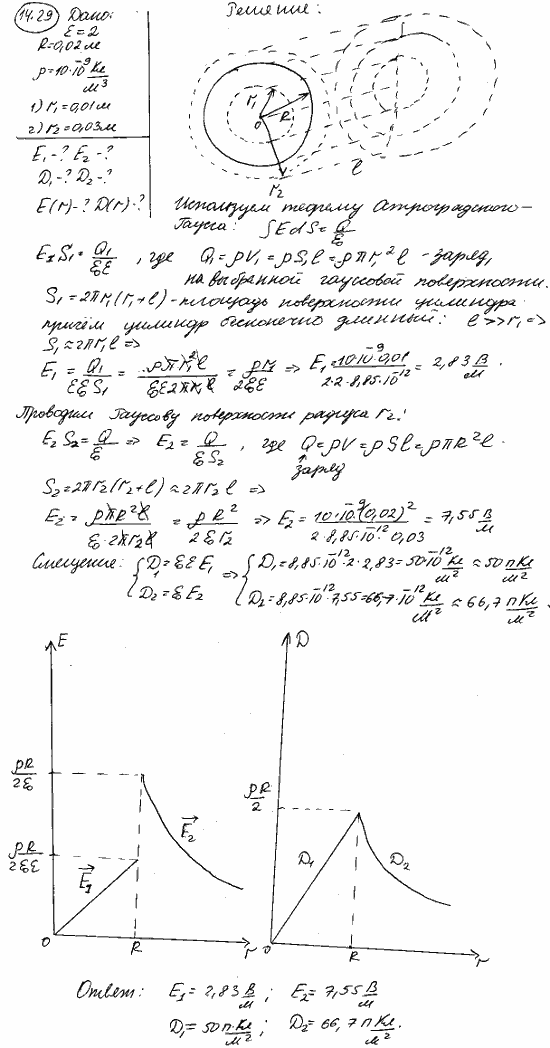 14.29 Дано: Решение:
ε=2
R=0,02м
ρ=10·10⁻⁹ Кл/м³
1) r₁=0,01м
2) r₂=0,03м
E₁-? E₂-?
D₁-? D₂-?
E(r)-? D(r)-?
r₁
R
O
r₂
l
Используем теорему Остроградского-
Гаусса: ∫EdS=Q/ε₀
E₁S₁=Q₁/εε₀, где Q₁=ρV₁=ρS₁l=ρπr₁²l -заряд,
на выбранной гауссовой поверхности.
S₁=2πr₁(r₁+l)-площадь поверхности цилиндра
причём цилиндр бесконечно длинный: l>>r₁=>
S₁≈2πr₁l=>
E₁=Q₁/εε₀S₁=ρπr₁²l/εε₀2πr₁l=ρr₁/2εε₀ => E₁=10·10⁻⁹·0,01/2·2·8,85·10⁻¹²=2,83 В/м.
Проводим Гауссову поверхности радиуса r₂:
E₂S₂=Q/ε₀ => E₂=Q/ε₀S₂, где Q=ρV=ρSl=ρπR²l.
заряд
S₂=2πr₂(r₂+l)≈2πr₂l =>
E₂=ρπR²l/ε₀·2πr₂l=ρR²/2ε₀r₂ => E₂=10·10⁻⁹·(0,02)²/2·8,85·10⁻¹²·0,03=7,55 В/м
Смещение: {D₁=εε₀E₁ => {D₁=8,85·10⁻¹²·2·2,83=50·10⁻¹² Кл/м²≈50 пКл/м²
D₂=ε₀E₂ D₂=8,85·10⁻¹²·7,55=66,7·10⁻¹² Кл/м²≈66,7 пКл/м².
E D
ρR/2ε₀
ρR/2
E₂
ρR/2εε₀
E₁
D₁ D₂
O R r O R r
Ответ: E₁=2,83 В/м; E₂=7,55 В/м
D₁=50 пКл/м²; D₂=66,7 пКл/м².